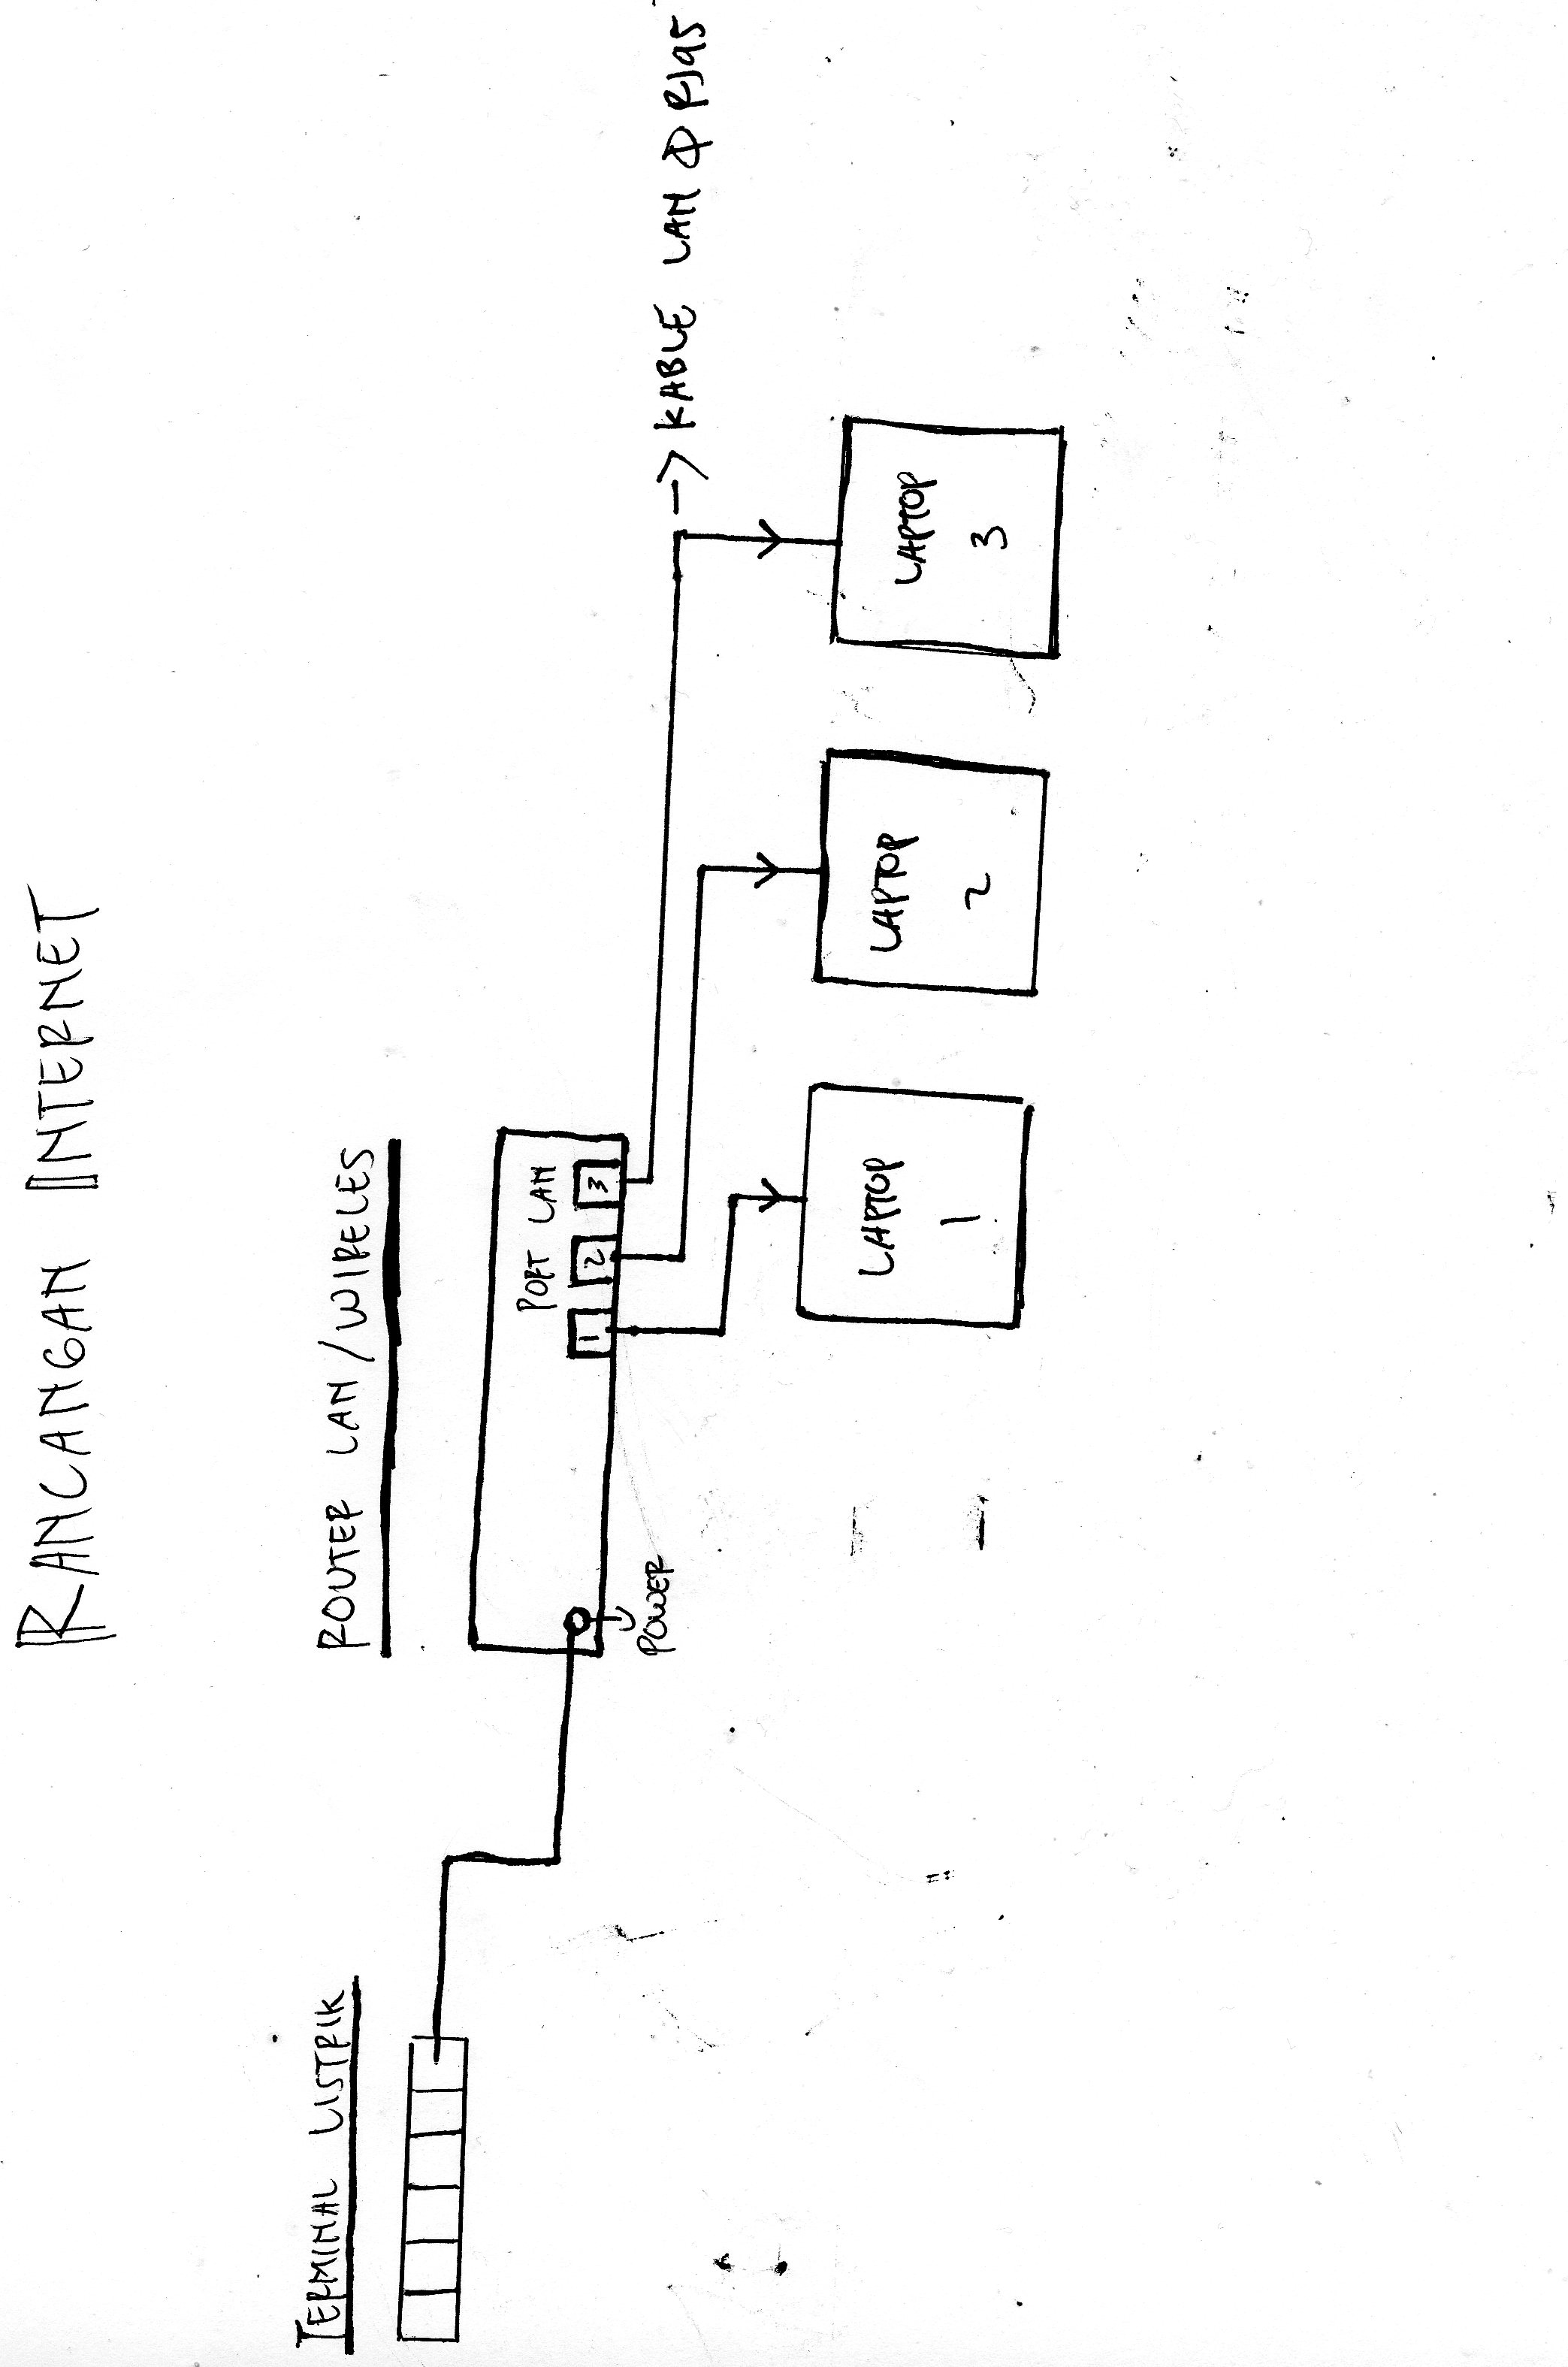 RANCANGAN INTERNET
TERMINAL LISTRIK
ROUTER LAN/WIRELES
PORT LAN
1 2 3
POWER
→ KABLE LAN Φ RJ95
LAPTOP
1
LAPTOP
2
LAPTOP
3